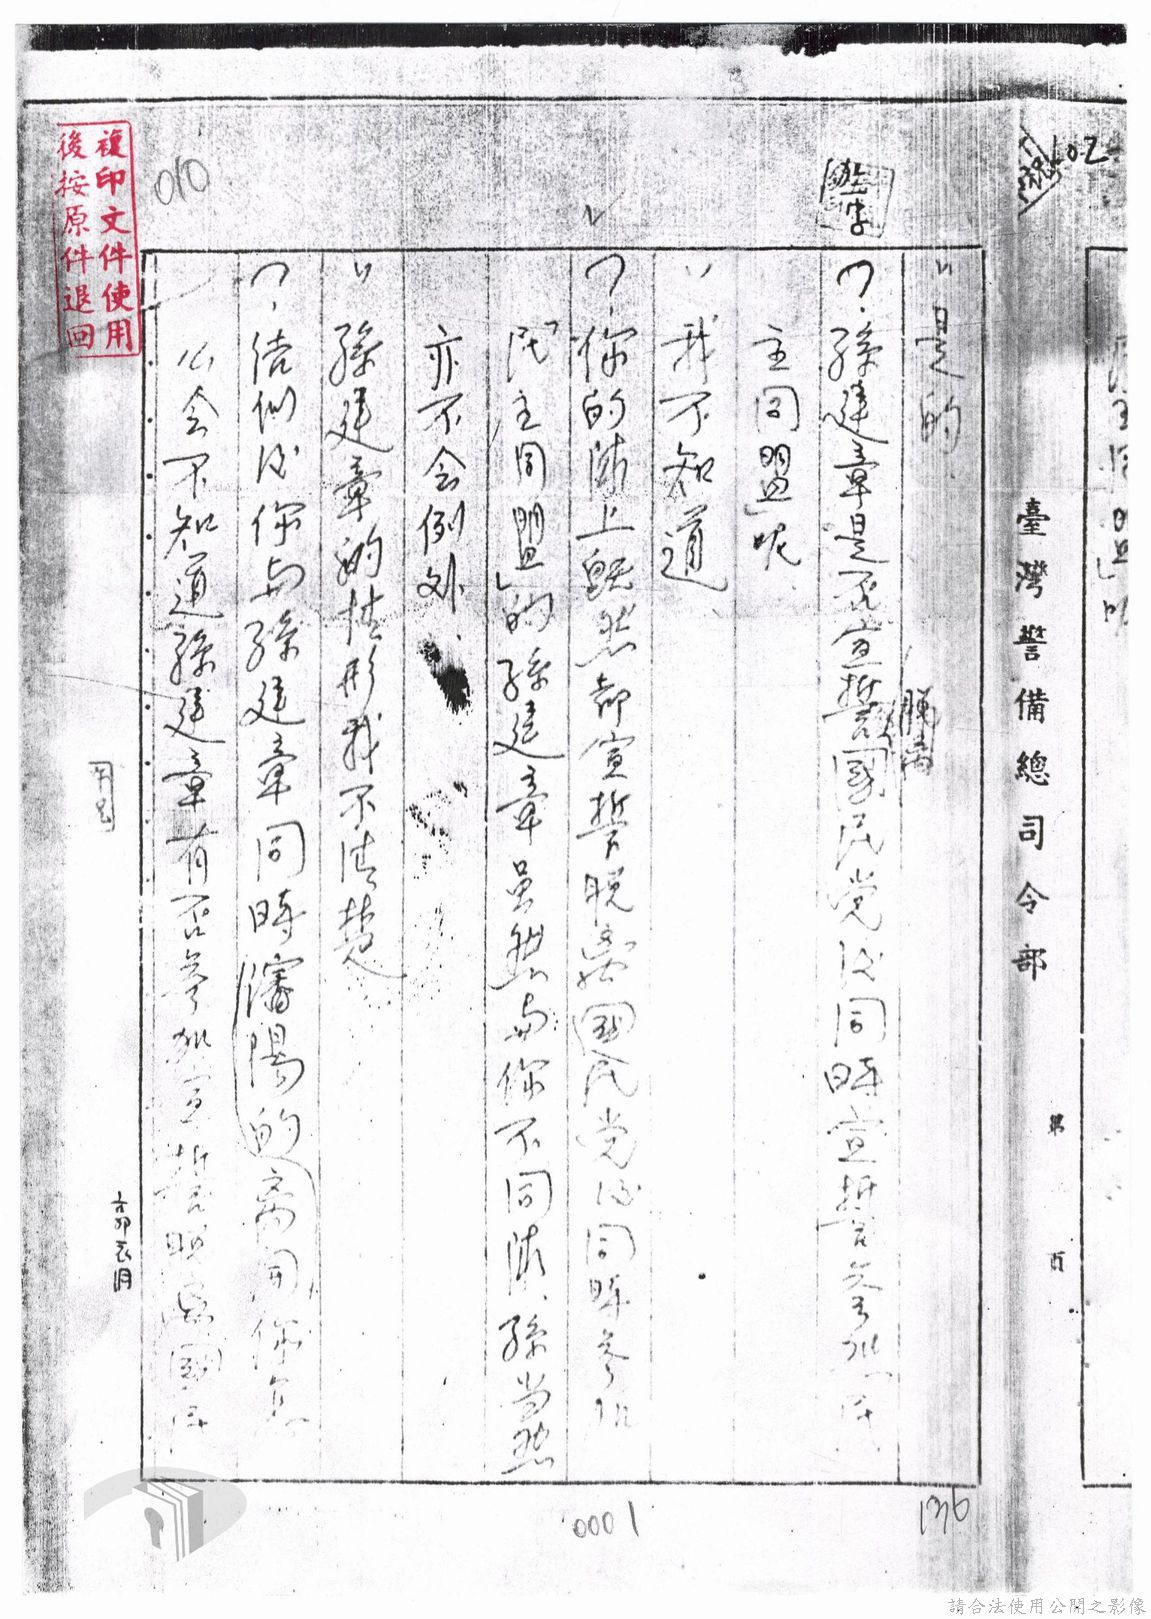 臺灣警備總司令部
第 頁
是的
孫建章是否宣誓脫離國民党后同時宣誓參加民
主同盟」呢
我不知道
你的隊上既然都宣誓脫離國民党后同時參加
「民主同盟」的孫建章虽然與你不同隊、孫当然
亦不会例外、
孫建章的情形我不清楚
你與孫建章同時瀋陽的离開你怎
么会不知道孫建章有否參加宣誓脫離國民
複印文件使用
後按原件退回
010
0001
136
請合法使用公開之影像